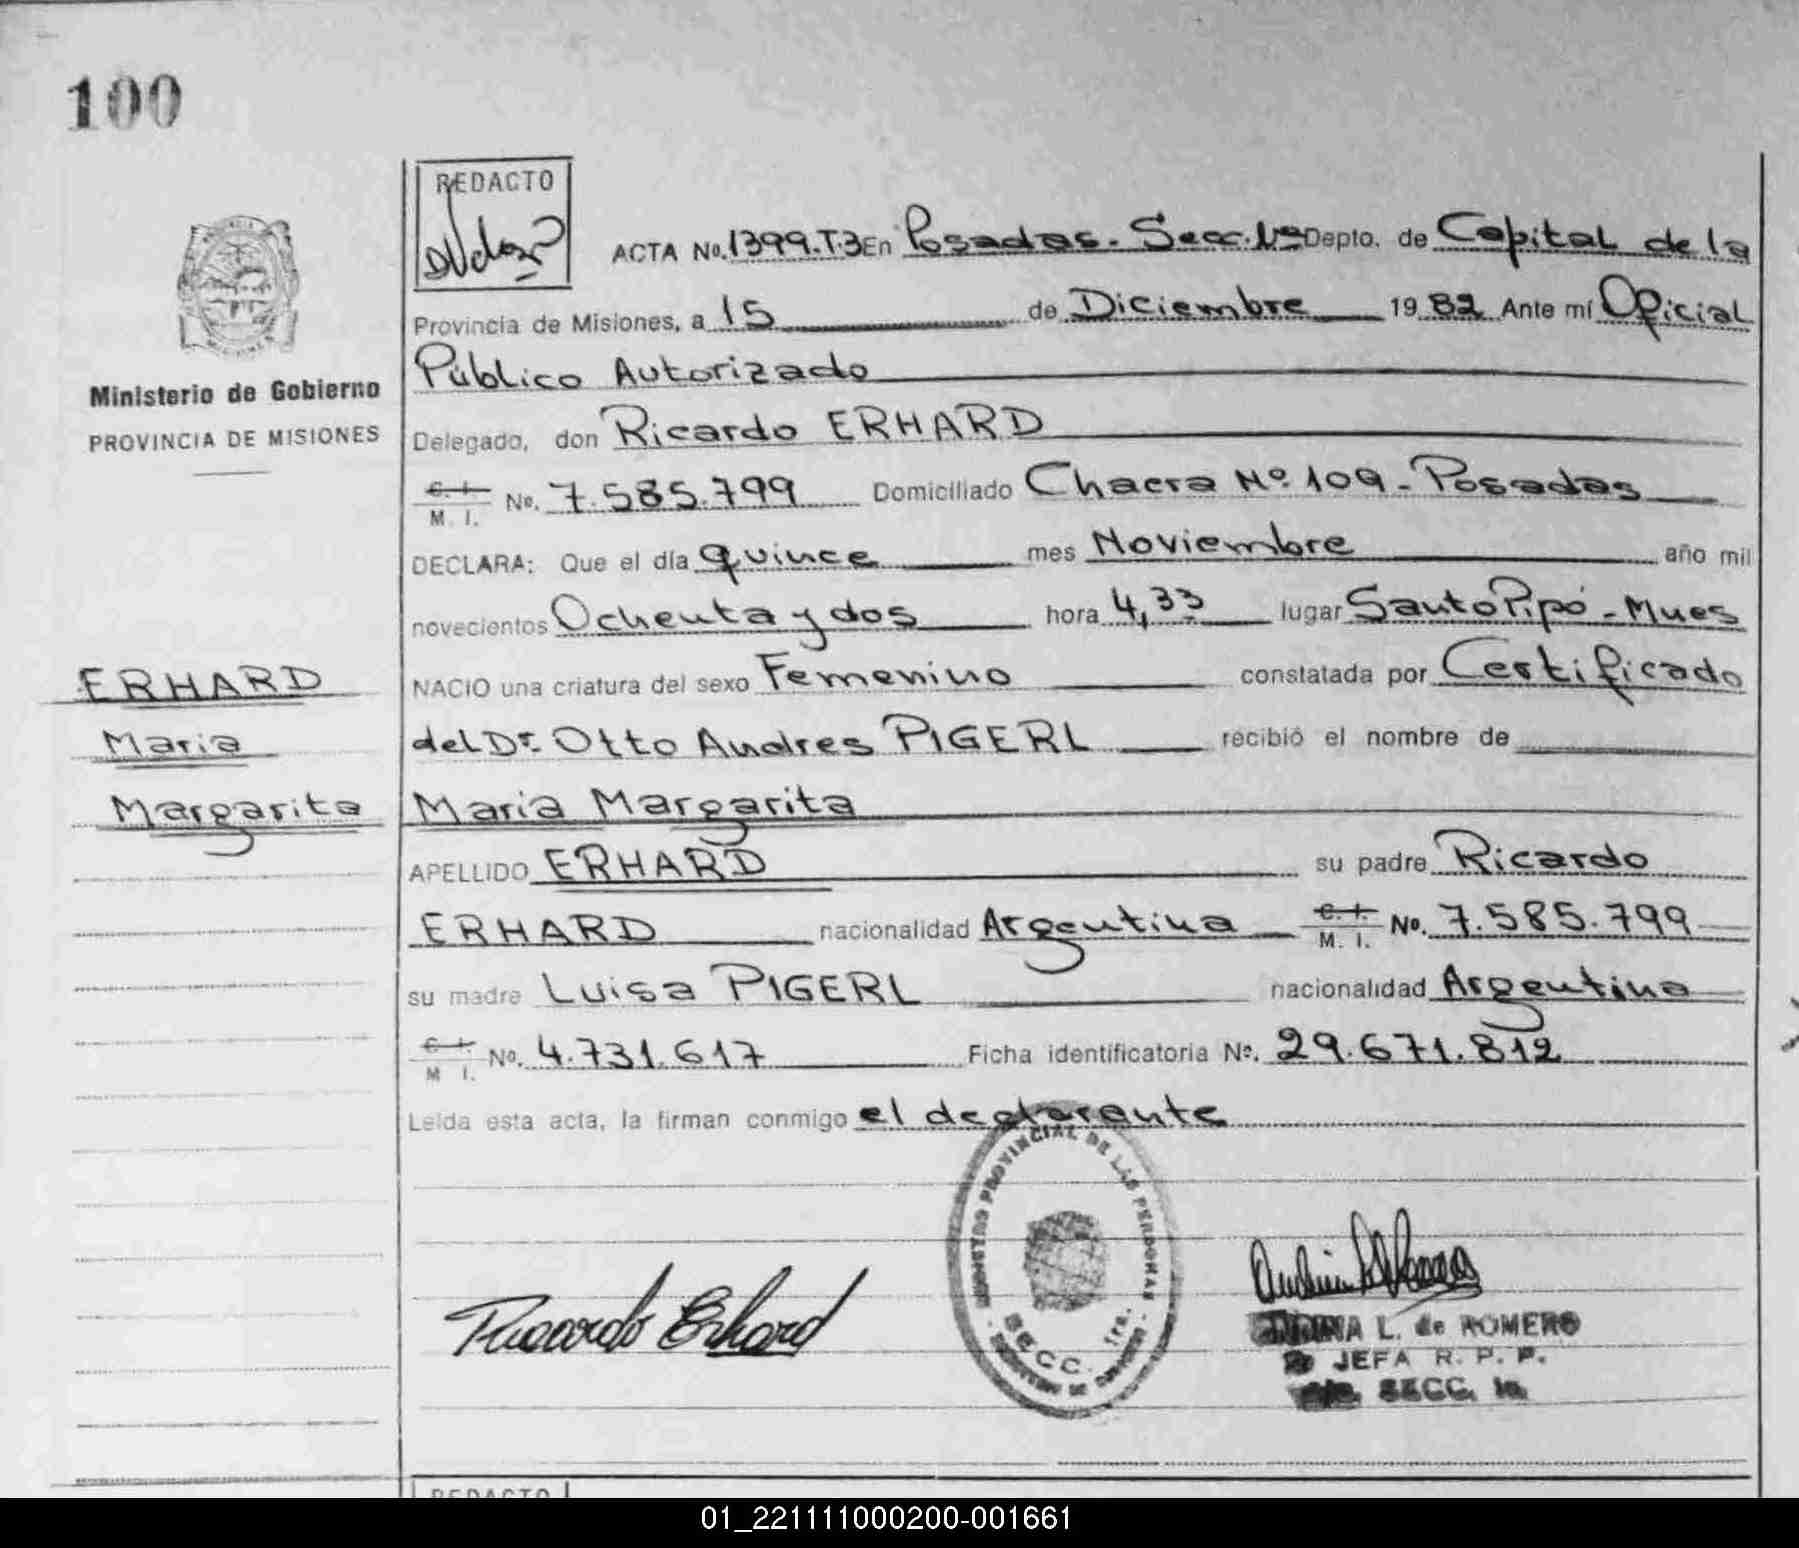 100
REDACTO
ACTA No. 1399.T.3 En Posadas. Secc. 1ª Depto. de Capital de la
Provincia de Misiones, a 15 de Diciembre 1982 Ante mí Oficial
Público Autorizado
Ministerio de Gobierno
PROVINCIA DE MISIONES
Delegado, don Ricardo ERHARD
C. I. M. I. No. 7.585.799 Domiciliado Chacra Nº 109 - Posadas
DECLARA: Que el día quince mes Noviembre año mil
novecientos Ochenta y dos hora 4,33 lugar Santo Pipó - Mnes
NACIO una criatura del sexo Femenino constatada por Certificado
del Dr. Otto Andres PIGERL recibió el nombre de
Maria Margarita
ERHARD
Maria
Margarita
APELLIDO ERHARD su padre Ricardo
ERHARD nacionalidad Argentina C. I. M. I. No. 7.585.799
su madre Luisa PIGERL nacionalidad Argentina
C. I. M I. No. 4.731.617 Ficha identificatoria Nº. 29.671.812
Leída esta acta, la firman conmigo el declarante
REGISTRO PROVINCIAL DE LAS PERSONAS
SECC. 1ra.
Ricardo Erhard
L. de ROMERO
JEFA R. P. P.
SECC. 1a.
REDACTO
01_221111000200-001661